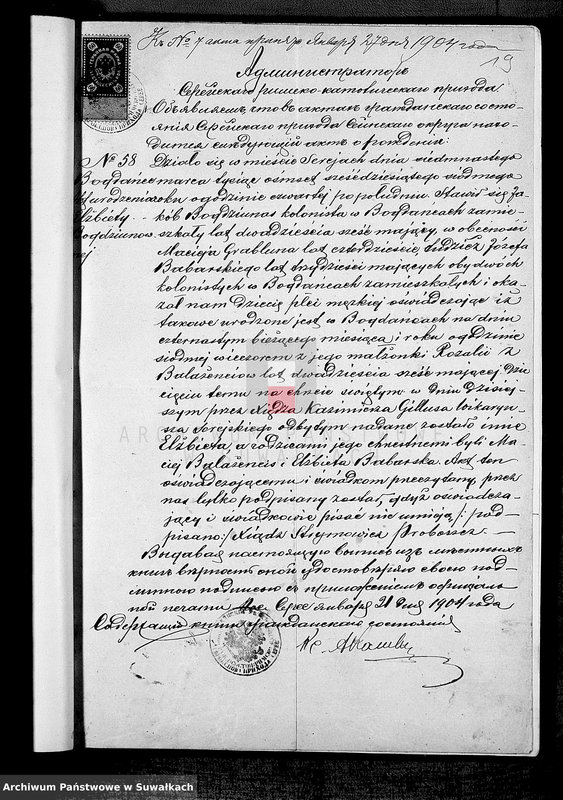 Къ № 7 акта принят Января 27 дня 1904 года
19
Администраторъ
Серейскаго римско-католическаго прихода
Объявляетъ, что въ актахъ гражданскаго состо-
янія Серейскаго прихода Сейнскаго округа нахо-
дится слѣдующій актъ о рожденіи:
№ 58 Działo się w mieście Serejach dnia siedmnastego
Bogdańce marca tysiąc ośmset sześćdziesiątego siódmego
urodzenia roku o godzinie czwartej popołudniu. Stawił się Ja-
Elżbiety kób Bogdziunas kolonista w Bogdańcach zamie-
Bogdziunow szkały lat dwadzieścia sześć mający, w obecności
Macieja Grabluna lat czterdzieście, tudzież Józefa
Babarskiego lat trzydzieści mających obydwóch
kolonistych w Bogdańcach zamieszkałych i oka-
zał nam Dziecię płci męzkiej oświadczając iż
takowe urodzone jest w Bogdańcach na dniu
czternastym bieżącego miesiąca i roku o godzinie
siódmej wieczorem z jego małżonki Rozalii z
Balażenciow lat dwadzieścia sześć mającej Dzie
cięciu temu na chrcie świętym w dniu dzisiej-
szym przez Xiędza Kazimierza Gillusa wikaryu-
sza Serejskiego odbytym nadane zostało imie
Elżbieta, a rodzicami jego chrestnemi byli Ma-
ciej Balażencis i Elżbieta Babarska. Akt ten
oświadczającemu i świadkom przeczytany, przez
nas tylko podpisany został, gdyż oświadcza-
jący i świadkowie pisać nie umieją /: pod-
pisano: Xiądz Proboszcz. —
Выдавая настоящую выпись изъ мѣстныхъ
книгъ вѣрность оной удостовѣряю своею под-
линною подписью съ приложеніемъ офиціаль
ной печати. Сереи января 21 дня 1904 года
Содержащій книги гражданскаго состоянія
Кс.
Archiwum Państwowe w Suwałkach